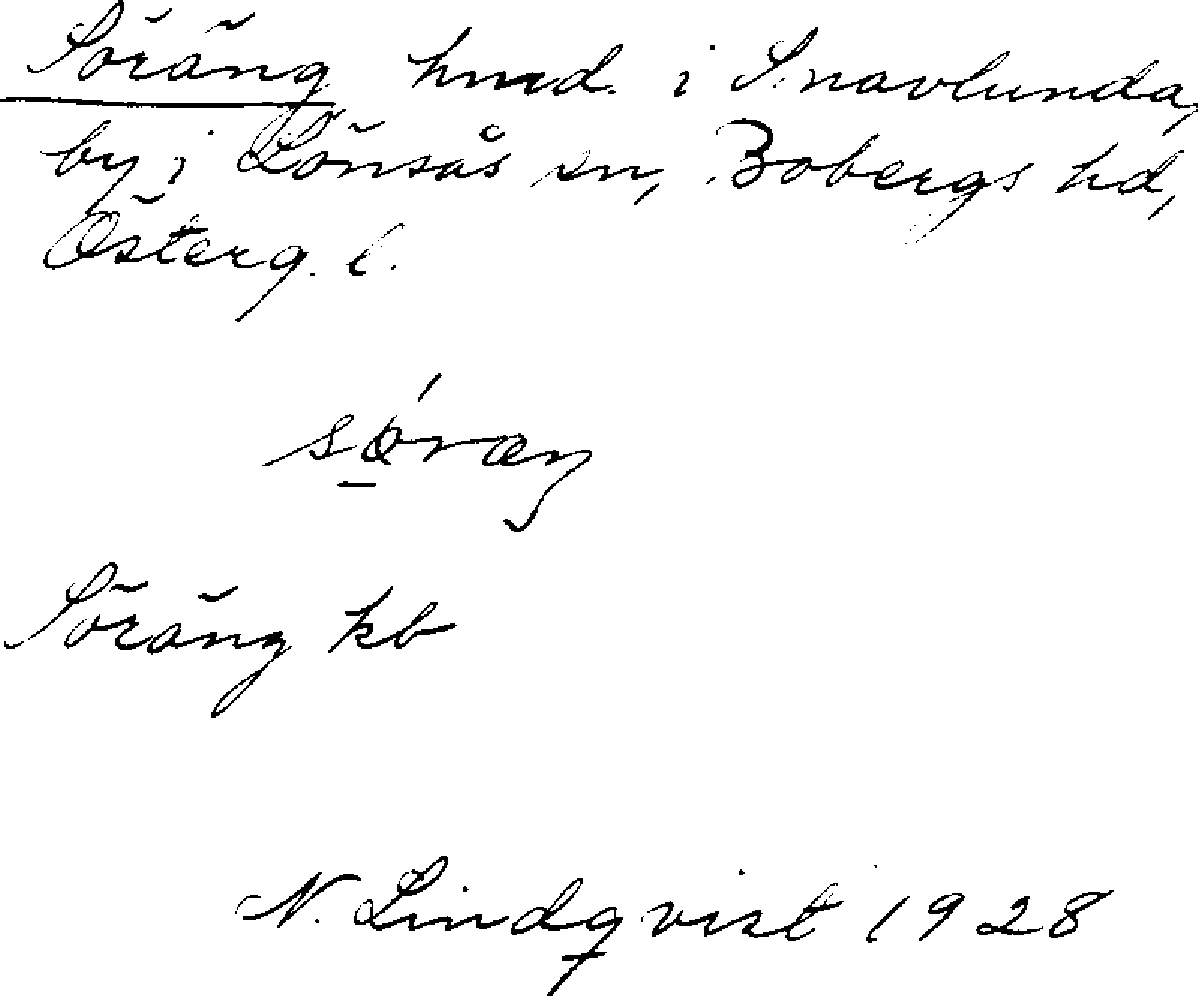 Söräng hmd. i Snavlunda,
by i Lönsås sn, Bobergs hd,
Österg. l.
sǿ̱ræŋ
Söräng kb
N. Lindqvist 1928